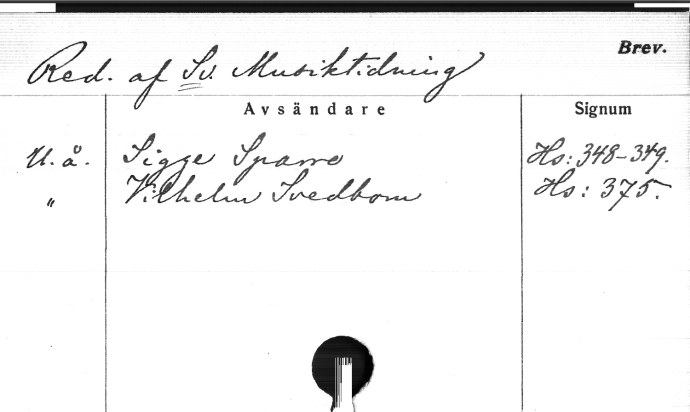 Brev.
Red. af Sv. Musiktidning
Avsändare Signum
U. å. Sigge Sparre Hs: 348-349.
" Vilhelm Svedbom Hs: 375.